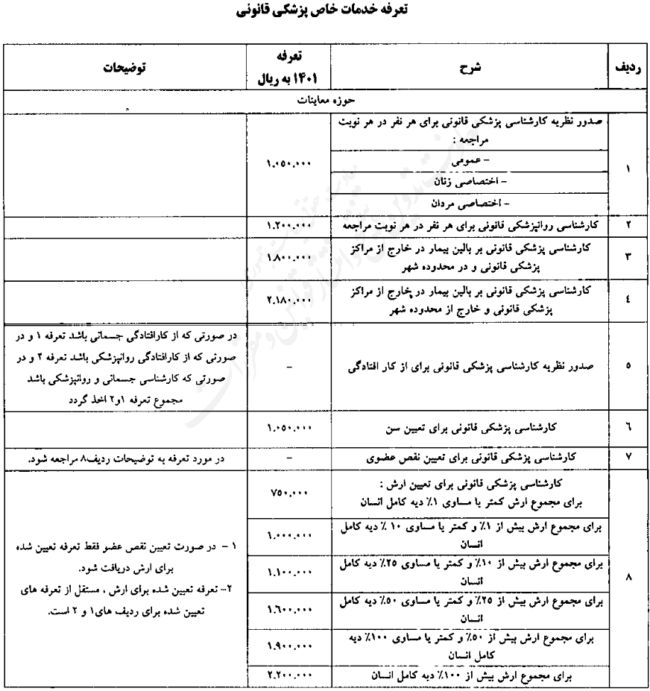 تعرفه خدمات خاص پزشکی قانونی
ردیف
شرح
تعرفه
۱۴۰۱ به ریال
توضیحات
حوزه معاینات
۱
صدور نظریه کارشناسی پزشکی قانونی برای هر نفر در هر نوبت
مراجعه :
– عمومی
– اختصاصی زنان
– اختصاصی مردان
۱.۰۵۰.۰۰۰
۲
کارشناسی روانپزشکی قانونی برای هر نفر در هر نوبت مراجعه
۱.۲۰۰.۰۰۰
۳
کارشناسی پزشکی قانونی بر بالین بیمار در خارج از مراکز
پزشکی قانونی و در محدوده شهر
۱.۸۰۰.۰۰۰
۴
کارشناسی پزشکی قانونی بر بالین بیمار در خارج از مراکز
پزشکی قانونی و خارج از محدوده شهر
۲.۱۸۰.۰۰۰
۵
صدور نظریه کارشناسی پزشکی قانونی برای از کار افتادگی
–
در صورتی که از کارافتادگی جسمانی باشد تعرفه ۱ و در
صورتی که از کارافتادگی روانپزشکی باشد تعرفه ۲ و در
صورتی که کارشناسی جسمانی و روانپزشکی باشد
مجموع تعرفه ۱و۲ اخذ گردد
۶
کارشناسی پزشکی قانونی برای تعیین سن
۱.۰۵۰.۰۰۰
۷
کارشناسی پزشکی قانونی برای تعیین نقص عضوی
–
در مورد تعرفه به توضیحات ردیف۸ مراجعه شود.
۸
کارشناسی پزشکی قانونی برای تعیین ارش :
برای مجموع ارش کمتر یا مساوی ۱٪ دیه کامل انسان
۷۵۰.۰۰۰
برای مجموع ارش بیش از ۱٪ و کمتر یا مساوی ۱۰ ٪ دیه کامل
انسان
۱.۰۰۰.۰۰۰
برای مجموع ارش بیش از ۱۰٪ و کمتر یا مساوی ۲۵٪ دیه کامل
انسان
۱.۱۰۰.۰۰۰
برای مجموع ارش بیش از ۲۵٪ و کمتر یا مساوی ۵۰٪ دیه کامل
انسان
۱.۶۰۰.۰۰۰
برای مجموع ارش بیش از ۵۰٪ و کمتر یا مساوی ۱۰۰٪ دیه
کامل انسان
۱.۹۰۰.۰۰۰
برای مجموع ارش بیش از ۱۰۰٪ دیه کامل انسان
۲.۲۰۰.۰۰۰
۱ – در صورت تعیین نقص عضو فقط تعرفه تعیین شده
برای ارش دریافت شود.
۲– تعرفه تعیین شده برای ارش ، مستقل از تعرفه های
تعیین شده برای ردیف های۱ و ۲ است.